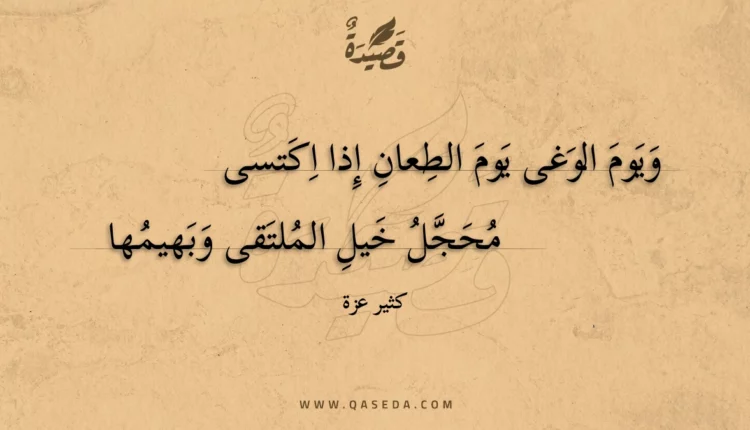 قَصِيْدَةٌ
وَيَومَ الوَغى يَومَ الطِعانِ إِذا اِكتَسى
مُحَجَّلُ خَيلِ المُلتَقى وَبَهيمُها
كثير عزة
WWW.QASEDA.COM